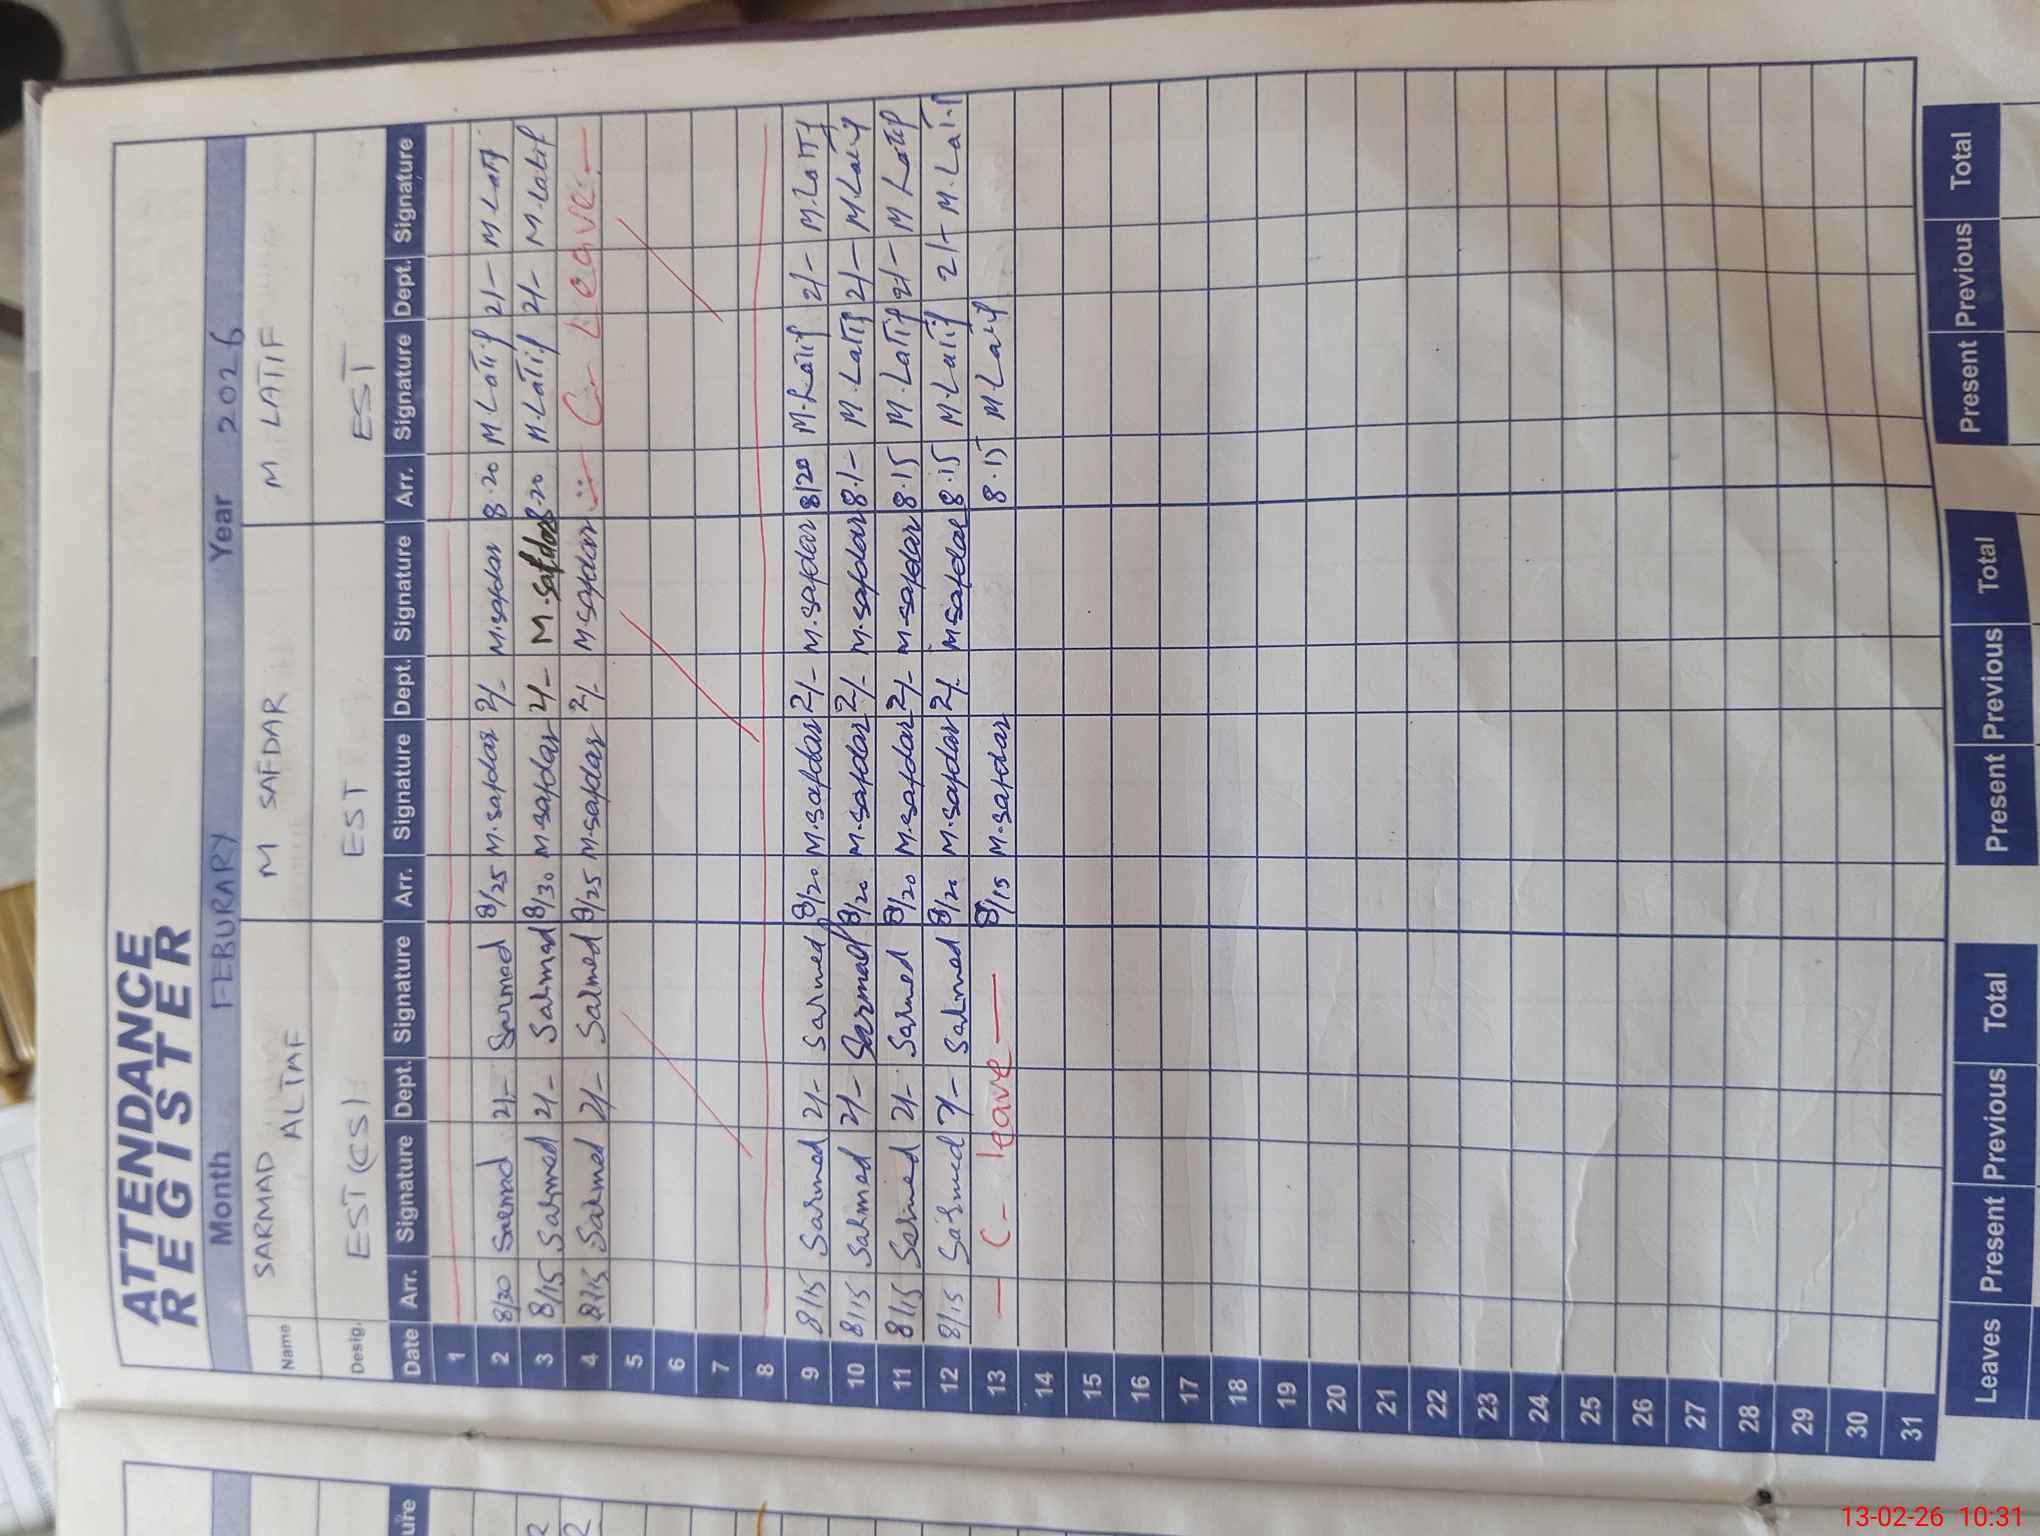 ATTENDANCE
REGISTER
Month FEBURARY Year 2026
Name SARMAD ALTAF M SAFDAR M LATIF
Desig. EST (CS) EST EST
Date Arr. Signature Dept. Signature Arr. Signature Dept. Signature Arr. Signature Dept. Signature
1
2 8/30 Sarmad 2/- Sarmad 8/25 M.safdar 2/- M.safdar 8.20 M.Latif 2/- M.Latif
3 8/15 Sarmad 2/- Sarmad 8/30 M.safdar 2/- M.safdar 8.20 M.Latif 2/- M.Latif
4 8/15 Sarmed 2/- Sarmed 8/25 M.safdar 2/- M.safdar C- Leave -
5
6
7
8
9 8/15 Sarmed 2/- Sarmed 8/20 M.safdar 2/- M.safdar 8/20 M.Latif 2/- M.Latif
10 8/15 Sarmed 2/- Sarmad 8/20 M.safdar 2/- M.safdar 8.1- M.Latif 2/- M.Latif
11 8/15 Sarmed 2/- Sarmed 8/20 M.safdar 2/- M.safdar 8.15 M.Latif 2/- M Latif
12 8/15 Sarmed 2/- Sarmed 8/20 M.safdar 2/- M.safdar 8.15 M.Latif 2/- M.Latif
13 - C- leave - 8/15 M.safdar 8.15 M.Latif
14
15
16
17
18
19
20
21
22
23
24
25
26
27
28
29
30
31
Leaves Present Previous Total Present Previous Total Present Previous Total
ure
13-02-26 10:31